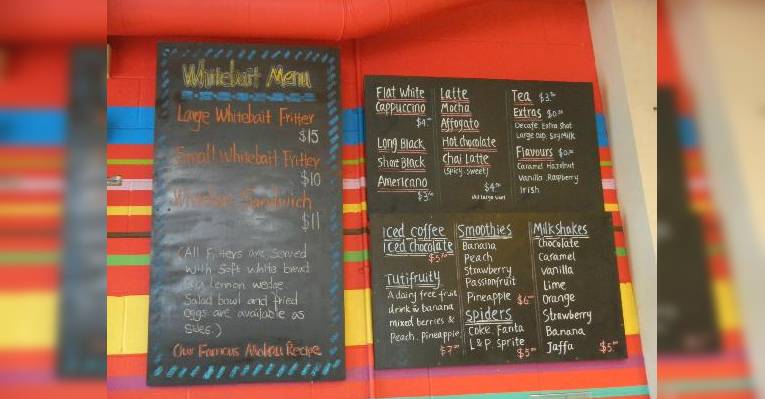 Whitebait Menu
Large Whitebait Fritter
$15
Small Whitebait Fritter
$10
Whitebait Sandwich
$11
(All Fritters are served
with soft white bread
lemon wedge
Salad bowl and fried
eggs are available as
sides.)
Our Famous Mokau Recipe
Flat White
Cappuccino
$4
Long Black
Short Black
Americano
Latte
Mocha
Affogato
Hot chocolate
Chai Latte
(Spicy, Sweet)
$4
Tea
Extras
Decafe Extra Shot
Large cup, Soy Milk
Flavours
Caramel Hazelnut
Vanilla Raspberry
Irish
iced coffee
iced chocolate
Tutifruity
A dairy free fruit
drink banana
mixed berries &
Peach, Pineapple
$7
Smoothies
Banana
Peach
Strawberry
Passionfruit
Pineapple $6
Spiders
Coke, Fanta
L&P, Sprite
$5
Milkshakes
Chocolate
Caramel
vanilla
Lime
Orange
Strawberry
Banana
Jaffa $5